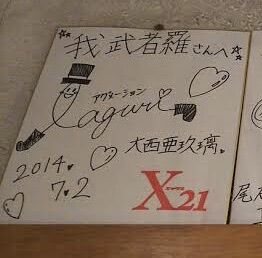 我武者羅さんへ
アクターション
aguri
大西亜玖璃。
2014.
7.2
X21
尾